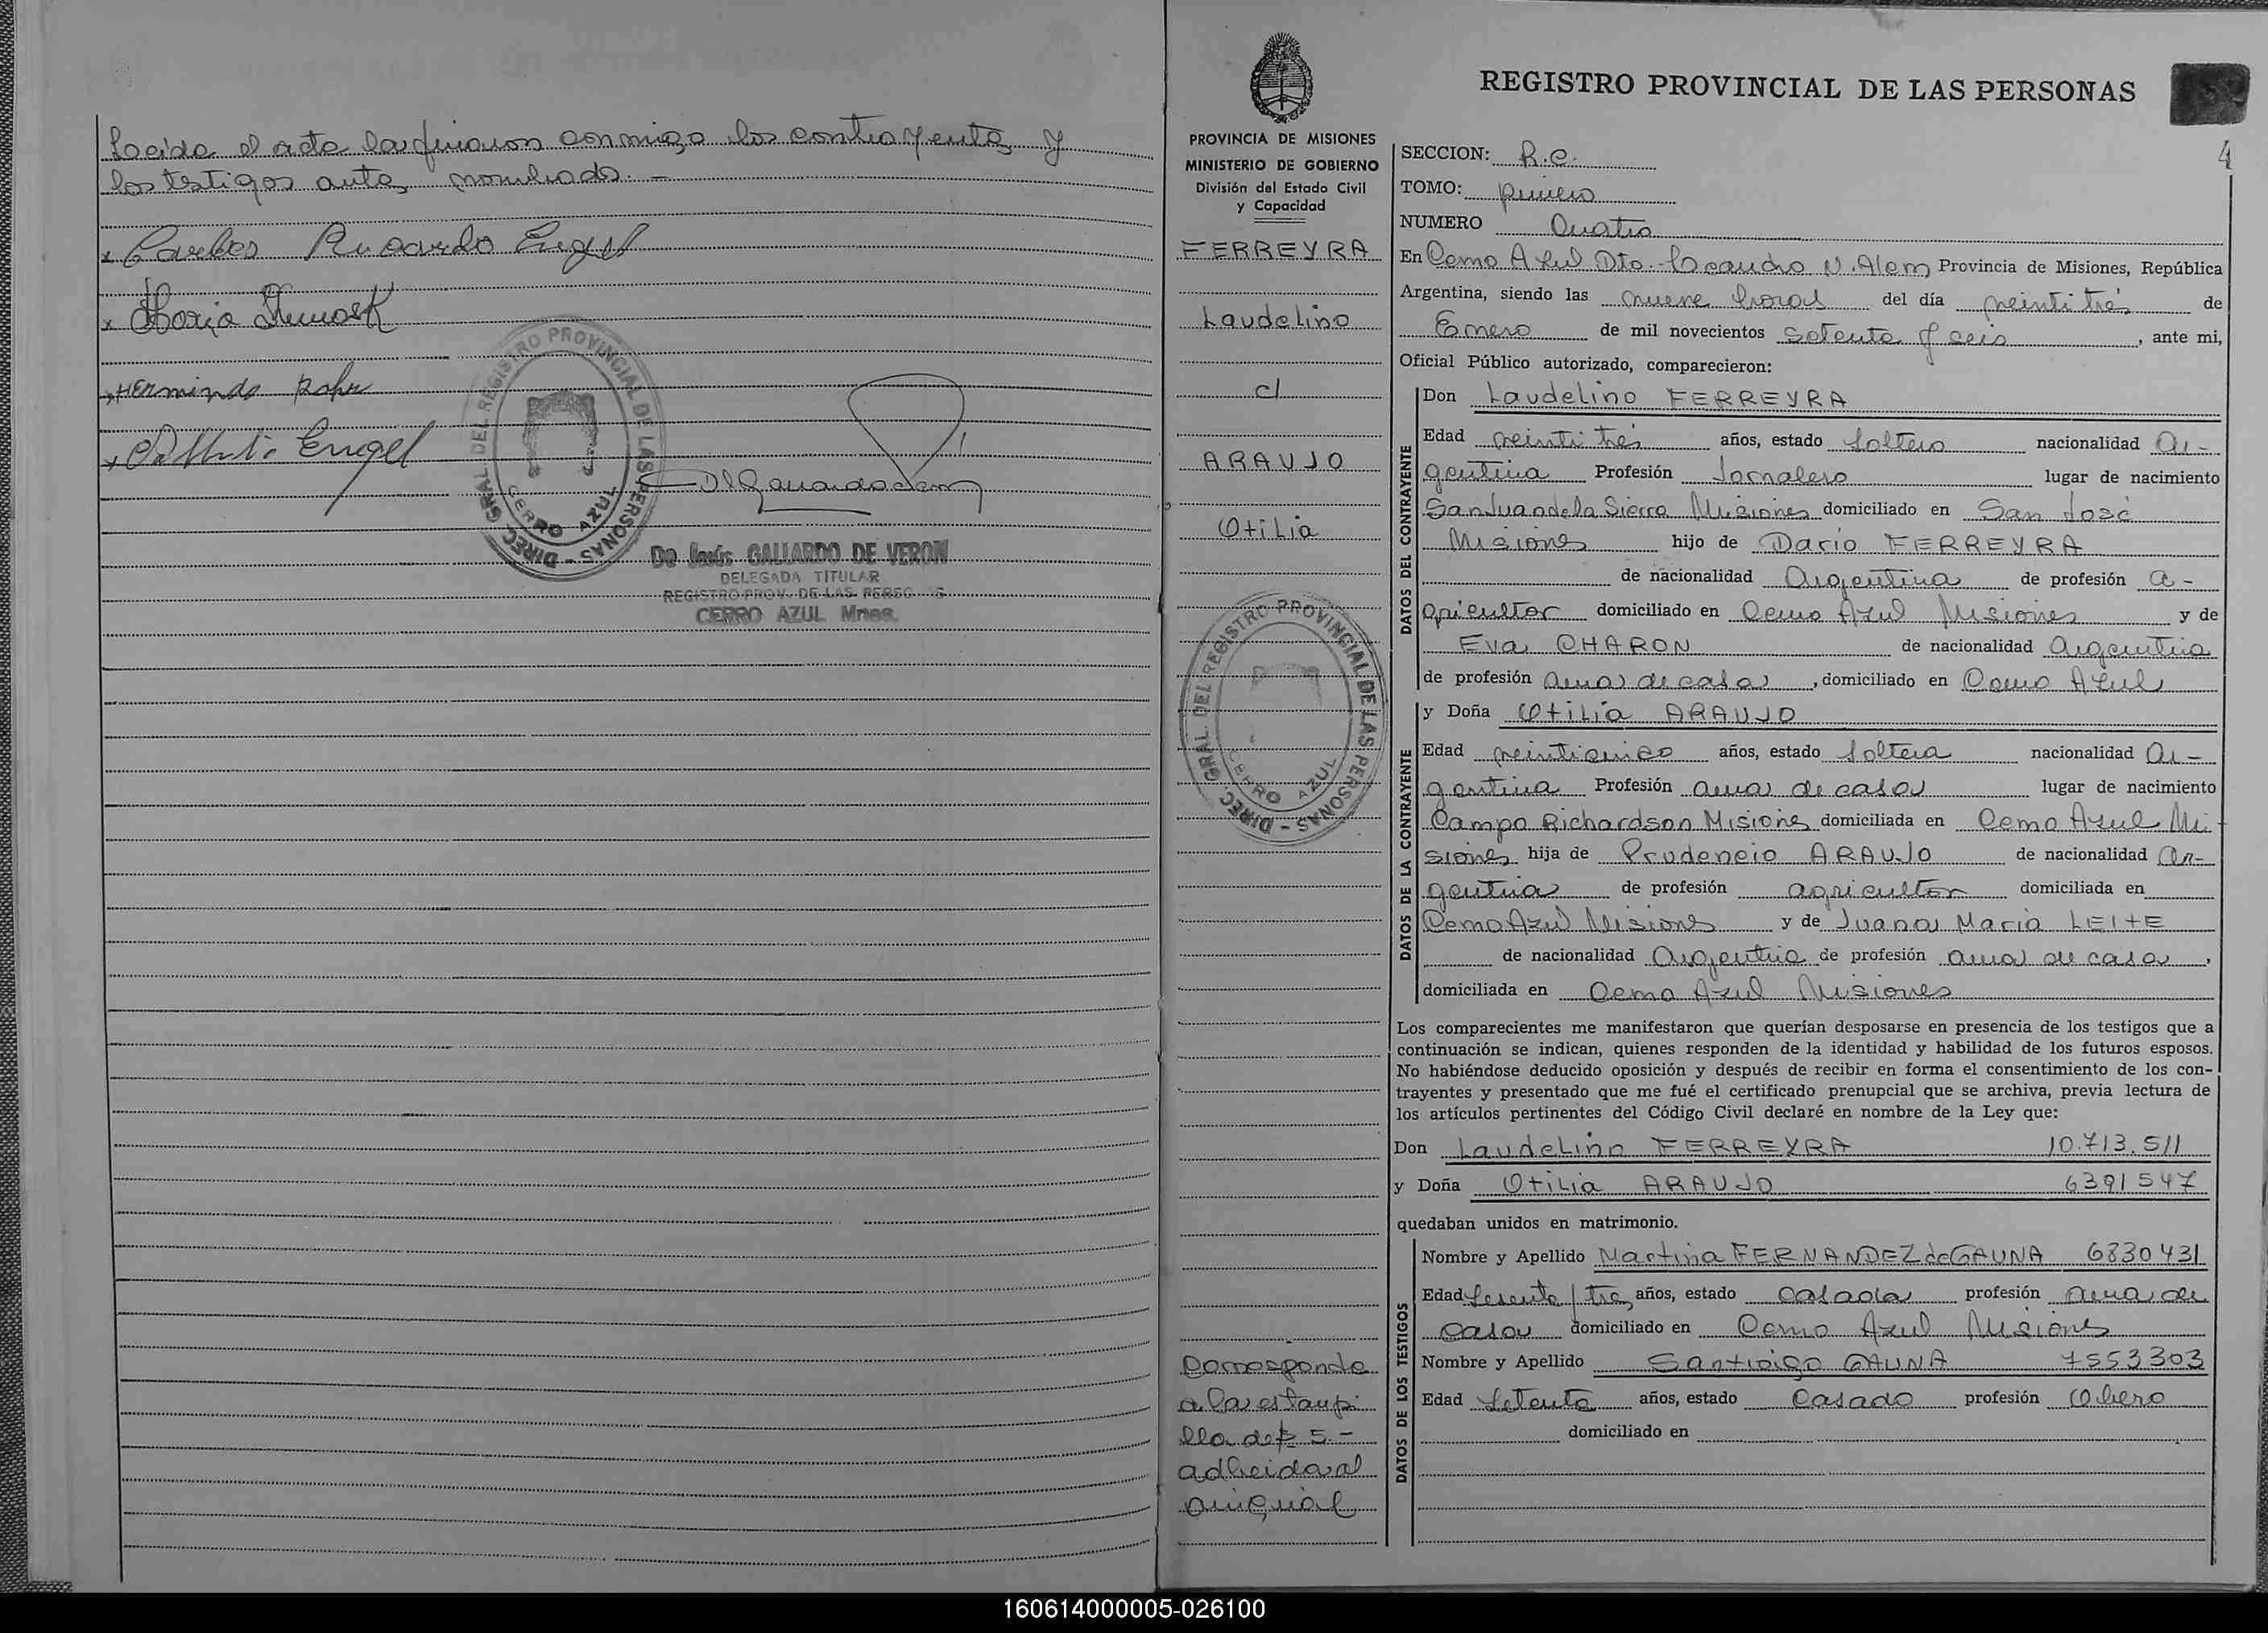 Leida el acta la firman conmigo los contrayentes y
los testigos antes nombrados. -
x Carlos Ricardo Engel
x Maria
x Herminda Rohr
x Engel
DIREC. GRAL. DEL REGISTRO PROVINCIAL DE LAS PERSONAS -
CERRO AZUL
De Jesús GALLARDO DE VERON
DELEGADA TITULAR
REGISTRO PROV. DE LAS PERSONAS
CERRO AZUL Mnes.
PROVINCIA DE MISIONES
MINISTERIO DE GOBIERNO
División del Estado Civil
y Capacidad
FERREYRA
Laudelino
c/
ARAUJO
Otilia
DIREC. GRAL. DEL REGISTRO PROVINCIAL DE LAS PERSONAS -
CERRO AZUL
Corresponde
a la estampi
lla de $ 5.-
adherida al
original
REGISTRO PROVINCIAL DE LAS PERSONAS
4
SECCION: R.C.
TOMO: primero
NUMERO Cuatro
En Cerro Azul Dto. Leandro N. Alem Provincia de Misiones, República
Argentina, siendo las nueve horas del día veintitrés de
Enero de mil novecientos setenta y seis, ante mi,
Oficial Público autorizado, comparecieron:
DATOS DEL CONTRAYENTE
Don Laudelino FERREYRA
Edad veintitrés años, estado soltero nacionalidad Ar-
gentina Profesión Jornalero lugar de nacimiento
San Juan de la Sierra Misiones domiciliado en San José
Misiones hijo de Dario FERREYRA
de nacionalidad Argentina de profesión a-
gricultor domiciliado en Cerro Azul Misiones y de
Eva CHARON de nacionalidad Argentina
de profesión ama de casa, domiciliado en Cerro Azul
DATOS DE LA CONTRAYENTE
y Doña Otilia ARAUJO
Edad veinticinco años, estado soltera nacionalidad Ar-
gentina Profesión ama de casa lugar de nacimiento
Campo Richardson Misiones domiciliada en Cerro Azul Mi-
siones hija de Prudencio ARAUJO de nacionalidad Ar-
gentina de profesión agricultor domiciliada en
Cerro Azul Misiones y de Juana Maria LEITE
de nacionalidad Argentina de profesión ama de casa,
domiciliada en Cerro Azul Misiones
Los comparecientes me manifestaron que querían desposarse en presencia de los testigos que a
continuación se indican, quienes responden de la identidad y habilidad de los futuros esposos.
No habiéndose deducido oposición y después de recibir en forma el consentimiento de los con-
trayentes y presentado que me fué el certificado prenupcial que se archiva, previa lectura de
los artículos pertinentes del Código Civil declaré en nombre de la Ley que:
Don Laudelino FERREYRA 10.713.511
y Doña Otilia ARAUJO 6391547
quedaban unidos en matrimonio.
DATOS DE LOS TESTIGOS
Nombre y Apellido Martina FERNANDEZ de GAUNA 6830431
Edad sesenta/tres años, estado casada profesión ama de
casa domiciliado en Cerro Azul Misiones
Nombre y Apellido Santiago GAUNA 7553303
Edad Setenta años, estado casado profesión Obrero
domiciliado en
160614000005-026100